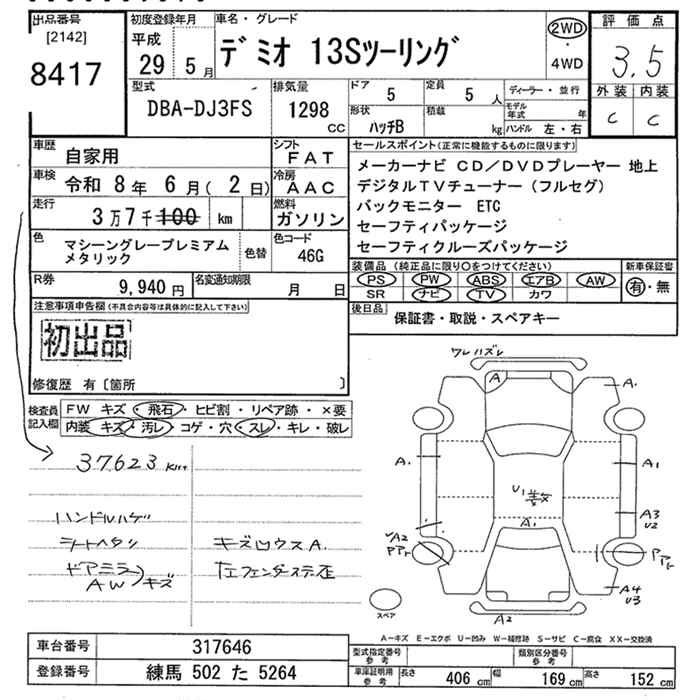 出品番号
[2142]
8417
初度登録年月
平成
29 5月
車名・グレード
デミオ 13Sツーリング
2WD
・
4WD
評価点
3.5
外装 内装
C C
型式
DBA-DJ3FS
排気量
1298
CC
ドア
5
定員
5 人
形状
ハッチB
積載
kg
ディーラー・並行
モデル年式 年
ハンドル 左・右
車歴
自家用
シフト
FAT
車検
令和 8年 6月( 2日)
冷房
AAC
走行
3万7千100 km
燃料
ガソリン
色
マシーングレープレミアム
メタリック
色替
色コード
46G
R券
9,940円
名変通知期限
月 日
セールスポイント(正常に機能するものに限ります)
メーカーナビ CD/DVDプレーヤー 地上
デジタルTVチューナー(フルセグ)
バックモニター ETC
セーフティパッケージ
セーフティクルーズパッケージ
装備品 (純正品に限り○をつけてください)
PS PW ABS エアB AW
SR ナビ TV カワ
新車保証書
有・無
後日品
保証書・取説・スペアキー
注意事項申告欄(不具合内容等は具体的に記入して下さい)
初出品
修復歴 有〔箇所 〕
検査員
記入欄
FW キズ・飛石・ヒビ割・リペア跡・×要
内装 キズ・汚レ・コゲ・穴・スレ・キレ・破レ
37623 Km
ハンドルハゲ
シートヘタリ
ドアミラー
AW キズ
キズ凹ウスA.
左フェンダーステー歪
ワレハズレ
A
A.
A.
A1
U1
A1
A3
U2
A4
U3
A2
スペア
A−キズ E−エクボ U−凹み W−補修跡 S−サビ C−腐食 XX−交換済
車台番号 317646
登録番号 練馬 502 た 5264
型式指定番号
参考
類別区分番号
参考
車庫証明用
参考
長さ 406 cm
幅 169 cm
高さ 152 cm